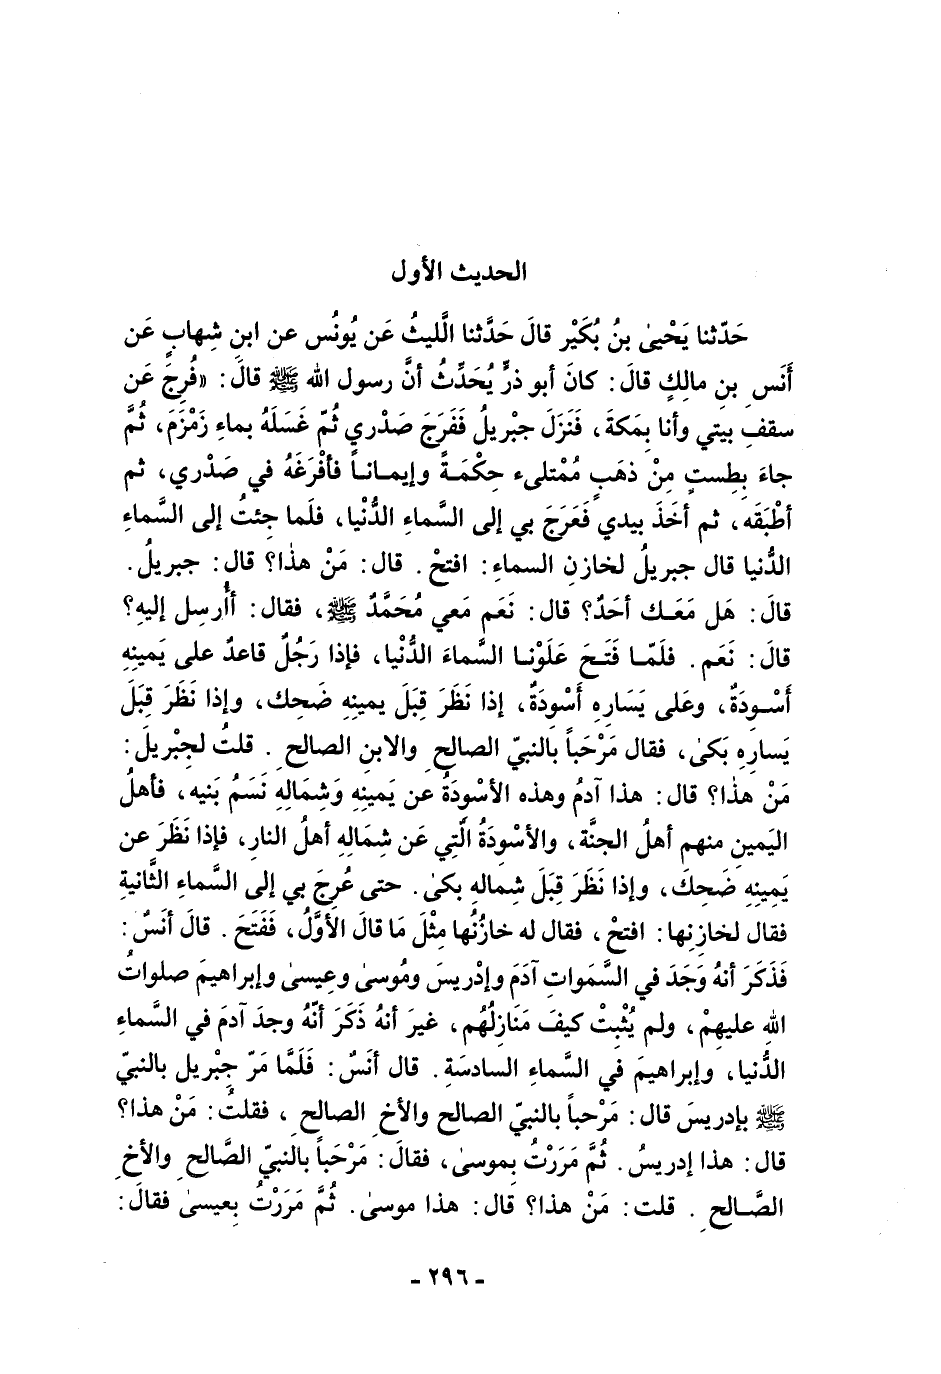 الحديث الأول
حَدّثنا يَحْيىٰ بنُ بُكَيْر قالَ حَدَّثنا الَّليثُ عَن يُونُس عن ابنِ شِهابٍ عَن
أَنَسِ بنِ مالِكٍ قالَ: كانَ أبو ذرٍّ يُحَدِّثُ أنَّ رسول الله ﷺ قالَ: «فُرِجَ عَن
سقفِ بيتي وأنا بِمَكةَ، فَنَزَلَ جبْريلُ فَفَرَجَ صَدْري ثُمّ غَسَلَهُ بماءِ زَمْزَمَ، ثُمَّ
جاءَ بِطِستٍ مِنْ ذهَبٍ مُمْتلىء حِكْمَةً وإيمانـاً فأفْرَغَهُ في صَدْري، ثم
أطْبَقَه، ثم أخَذَ بيدي فَعَرَجَ بي إلى السَّماءِ الدُّنْيا، فلَما جِئتُ إلى السَّماءِ
الدُّنيا قال جبريلُ لخازنِ السماءِ: افتحْ. قال: مَنْ هذٰا؟ قال: جبريلُ.
قالَ: هَل مَعَـك أحَدٌ؟ قال: نَعَم مَعي مُحَمَّدٌ ﷺ، فقال: أأُرسِل إليهِ؟
قالَ: نَعَم. فلَمّـا فَتَـحَ عَلَوْنـا السَّماءَ الدُّنْيا، فإذا رَجُلٌ قاعدٌ على يَمينِهِ
أَسْـودَةٌ، وعَلى يَسَارهِ أَسْودَةٌ، إذا نَظَرَ قِبَلَ يمينِهِ ضَحِك، وإذا نَظَرَ قِبَلَ
يَسارِهِ بَكىٰ، فقال مَرْحَباً بالنبيّ الصالحِ والابنِ الصالحِ. قلتُ لجِبْريلَ:
مَنْ هذٰا؟ قال: هذا آدمُ وهذه الأسْودَةُ عن يَمينِهِ وَشمالِهِ نَسَمُ بَنيه، فأهلُ
اليَمينِ منهم أهلُ الجنَّة، والأسْودَةُ الَّتِي عَن شِمالِهِ أهلُ النارِ، فإذا نَظَرَ عن
يَمِينِهِ ضَحِكَ، وإذا نَظَرَ قِبَلَ شِمالِهِ بكىٰ. حتى عُرِجَ بي إلى السَّماءِ الثَّانيةِ
فقال لخازنِها: افتحْ، فقال له خازُنُها مِثْلَ مَا قالَ الأوَّلُ، فَفَتَحَ. قالَ أنَسٌ:
فَذَكَرَ أنهُ وَجَدَ في السَّمَواتِ آدَمَ وإدْريسَ ومُوسىٰ وعِيسىٰ وإبراهيمَ صلواتُ
اللهِ عليهِمْ، ولم يُثْبِتْ كيفَ مَنَازِلُهُم، غيرَ أنهُ ذَكَرَ أنّهُ وجدَ آدمَ في السَّماءِ
الدُّنيا، وإبراهيمَ في السَّماءِ السادسَةِ. قال أنَسٌ: فَلَمَّا مَرّ جِبْريل بالنبيّ
ﷺ بإدريسَ قال: مَرْحباً بالنبيّ الصالحِ والأخِ الصالحِ، فقلتُ: مَنْ هذا؟
قال: هذا إدريسُ. ثُمَّ مَرَرْتُ بِموسىٰ، فقالَ: مَرْحَباً بالنبيّ الصَّالحِ والأخِ
الصَّـالحِ. قلت: مَنْ هذا؟ قال: هذا موسىٰ. ثُمَّ مَرَرْتُ بِعيسىٰ فقالَ:
- ٢٩٦ -